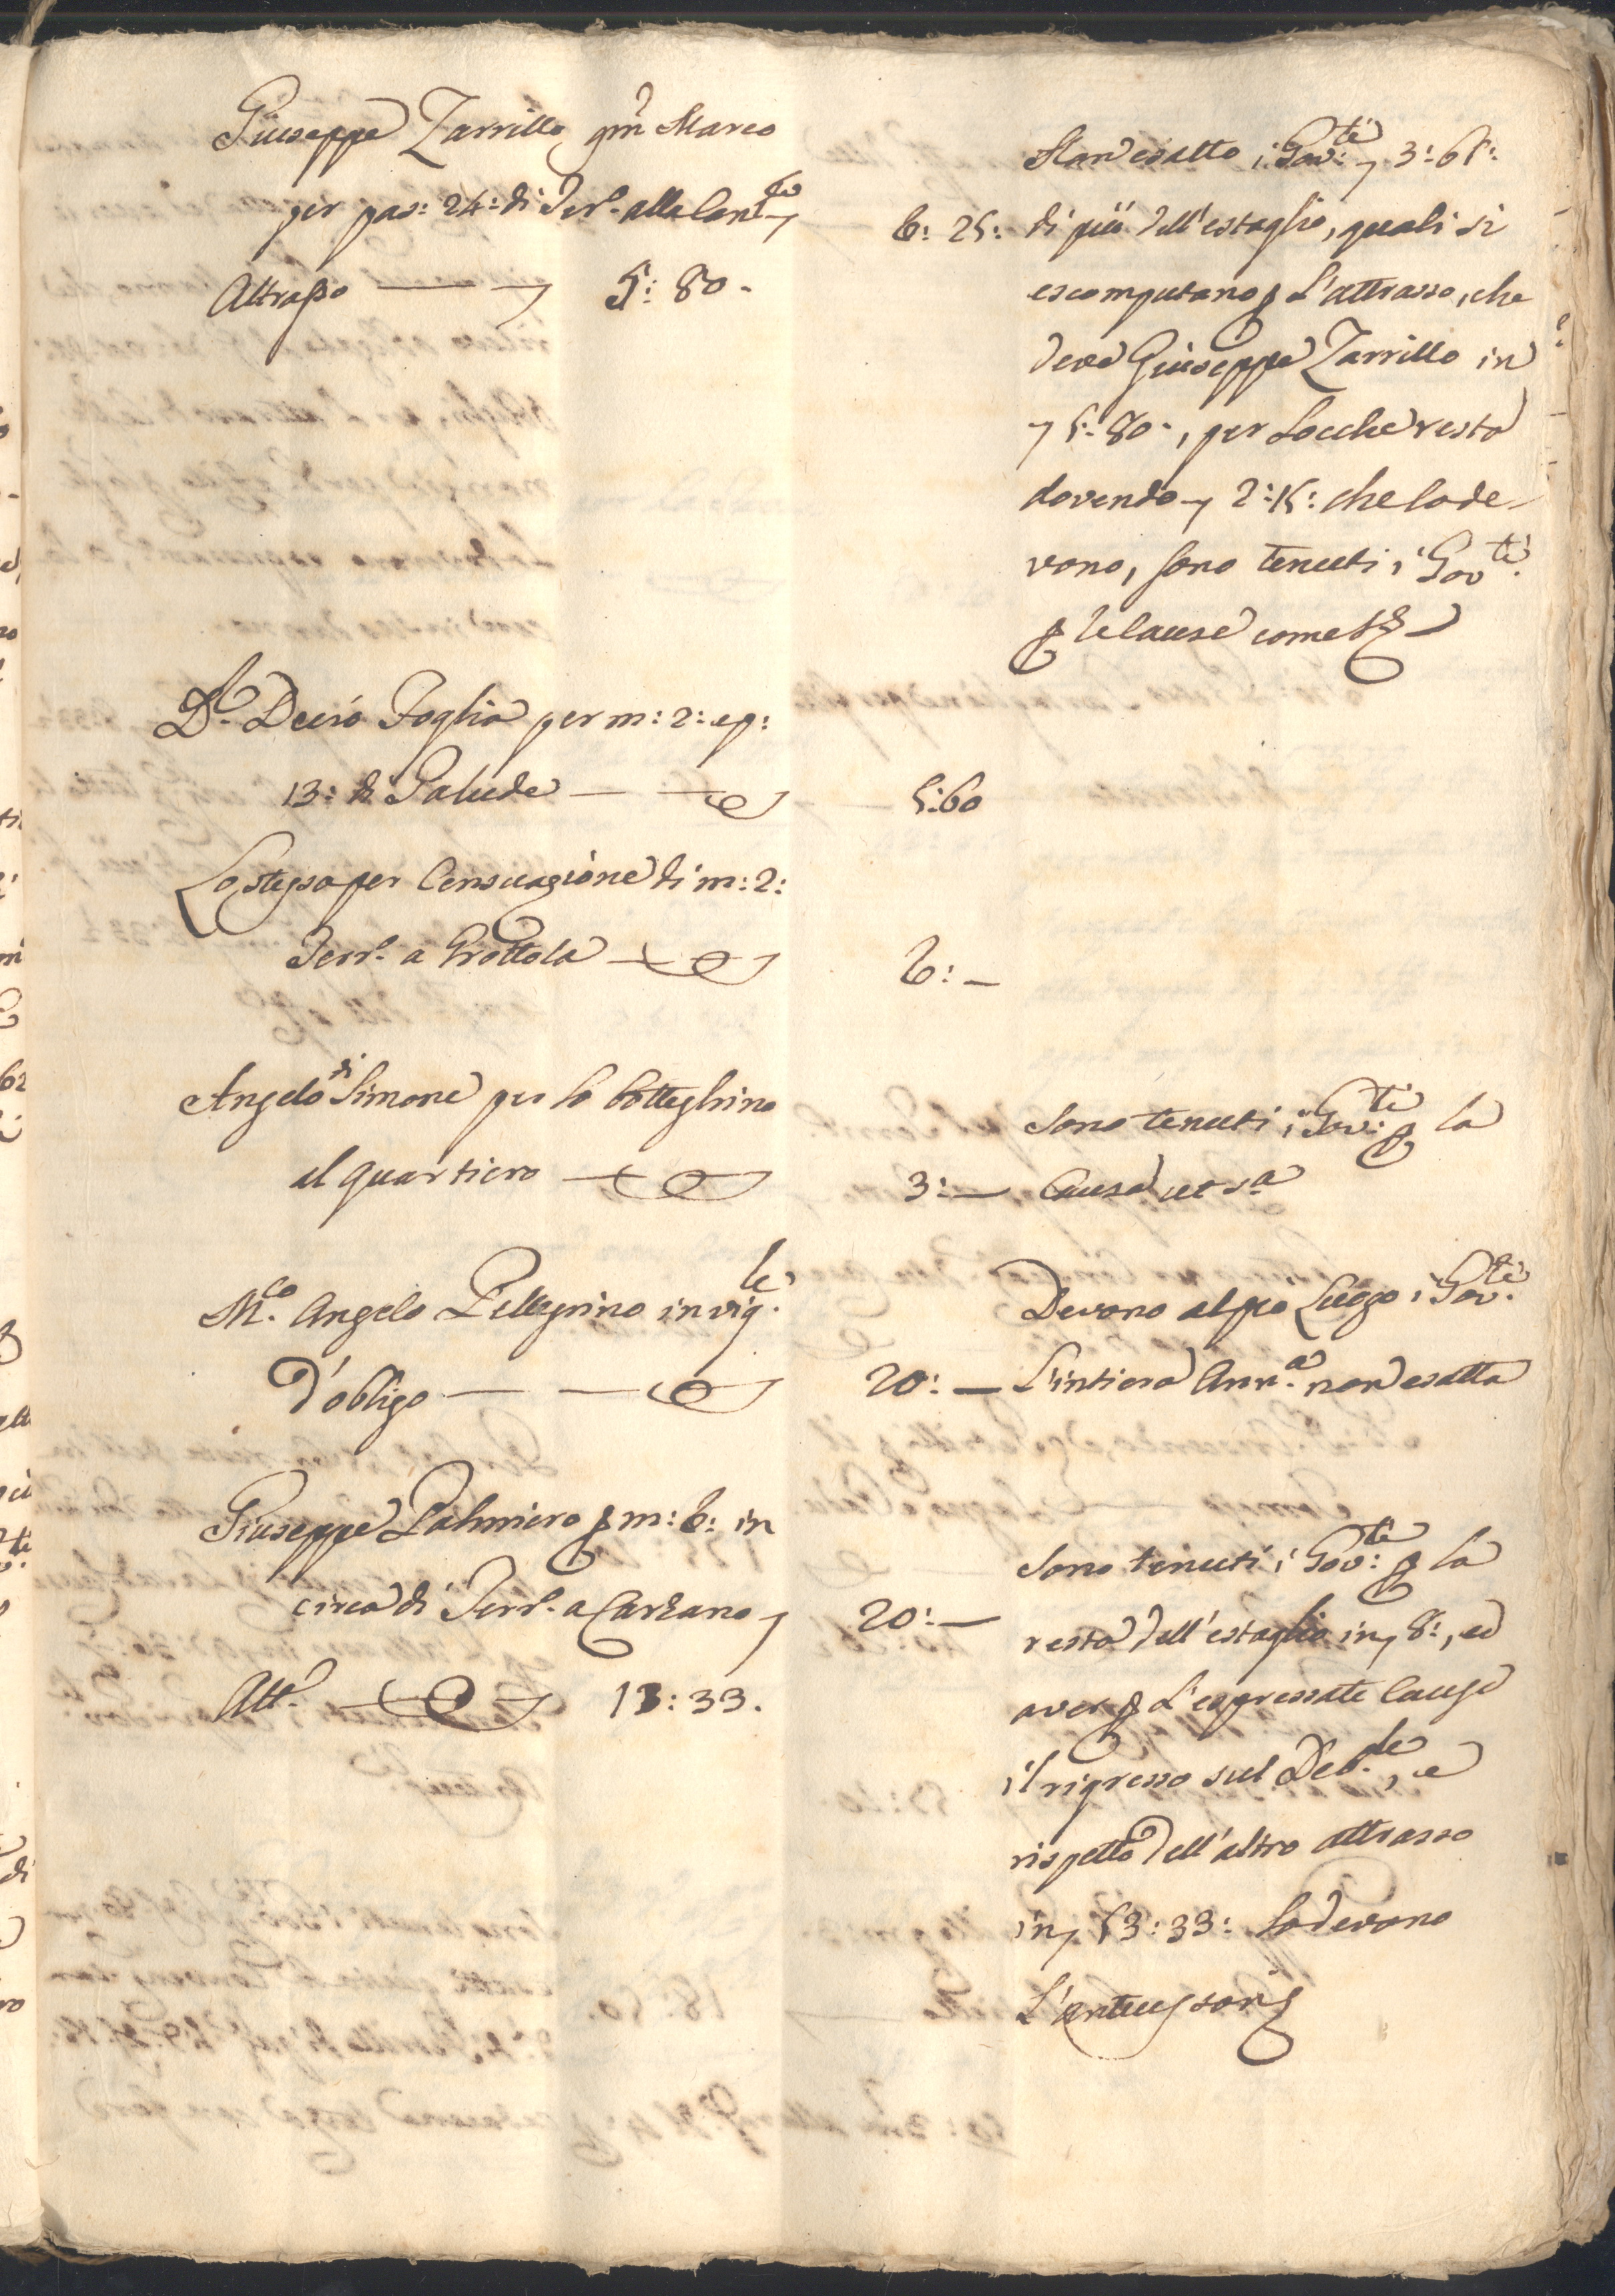 Giuseppe Zarrillo qm Marco
per pas: 24: di Terr.
Attrasso — 5: 80.
6: 25:
Han esatto i Gov:ti 3: 65:
di più dell'estaglio, quali si
escomputano p L'attrasso, che
deve Giuseppe Zarrillo in
5: 80:, per Locche resta
dovendo 2: 15: che lo de-
vono, sono tenuti i Govti.
p le Cause come
D. Decio Foglia per m: 2: e p:
13: di Palude —
5:60
Lo stesso per Censuazione di m: 2:
Terr. a Grottola —
6: —
Angelo di Simone per lo botteghino
al quartiero —
3: —
Sono tenuti i Gov:ti p la
Causa ut sa
M.co Angelo Pellegrino in vig.le
d'obligo —
20: —
Devono al pio Luogo i Gov.ti
L'intiera Ann.a non esatta
Giuseppe Palmiero p m: 6: in
circa di Terr. a Carzano
20: —
Att. — 13: 33.
Sono tenuti i Gov:ti p la
resta dell'estaglio in 8:, ed
aver p L'espressate Cause
il rigresso sul Deb.le, e
rispetto dell'altro attrasso
in 13: 33: lo devono
L'antecessori